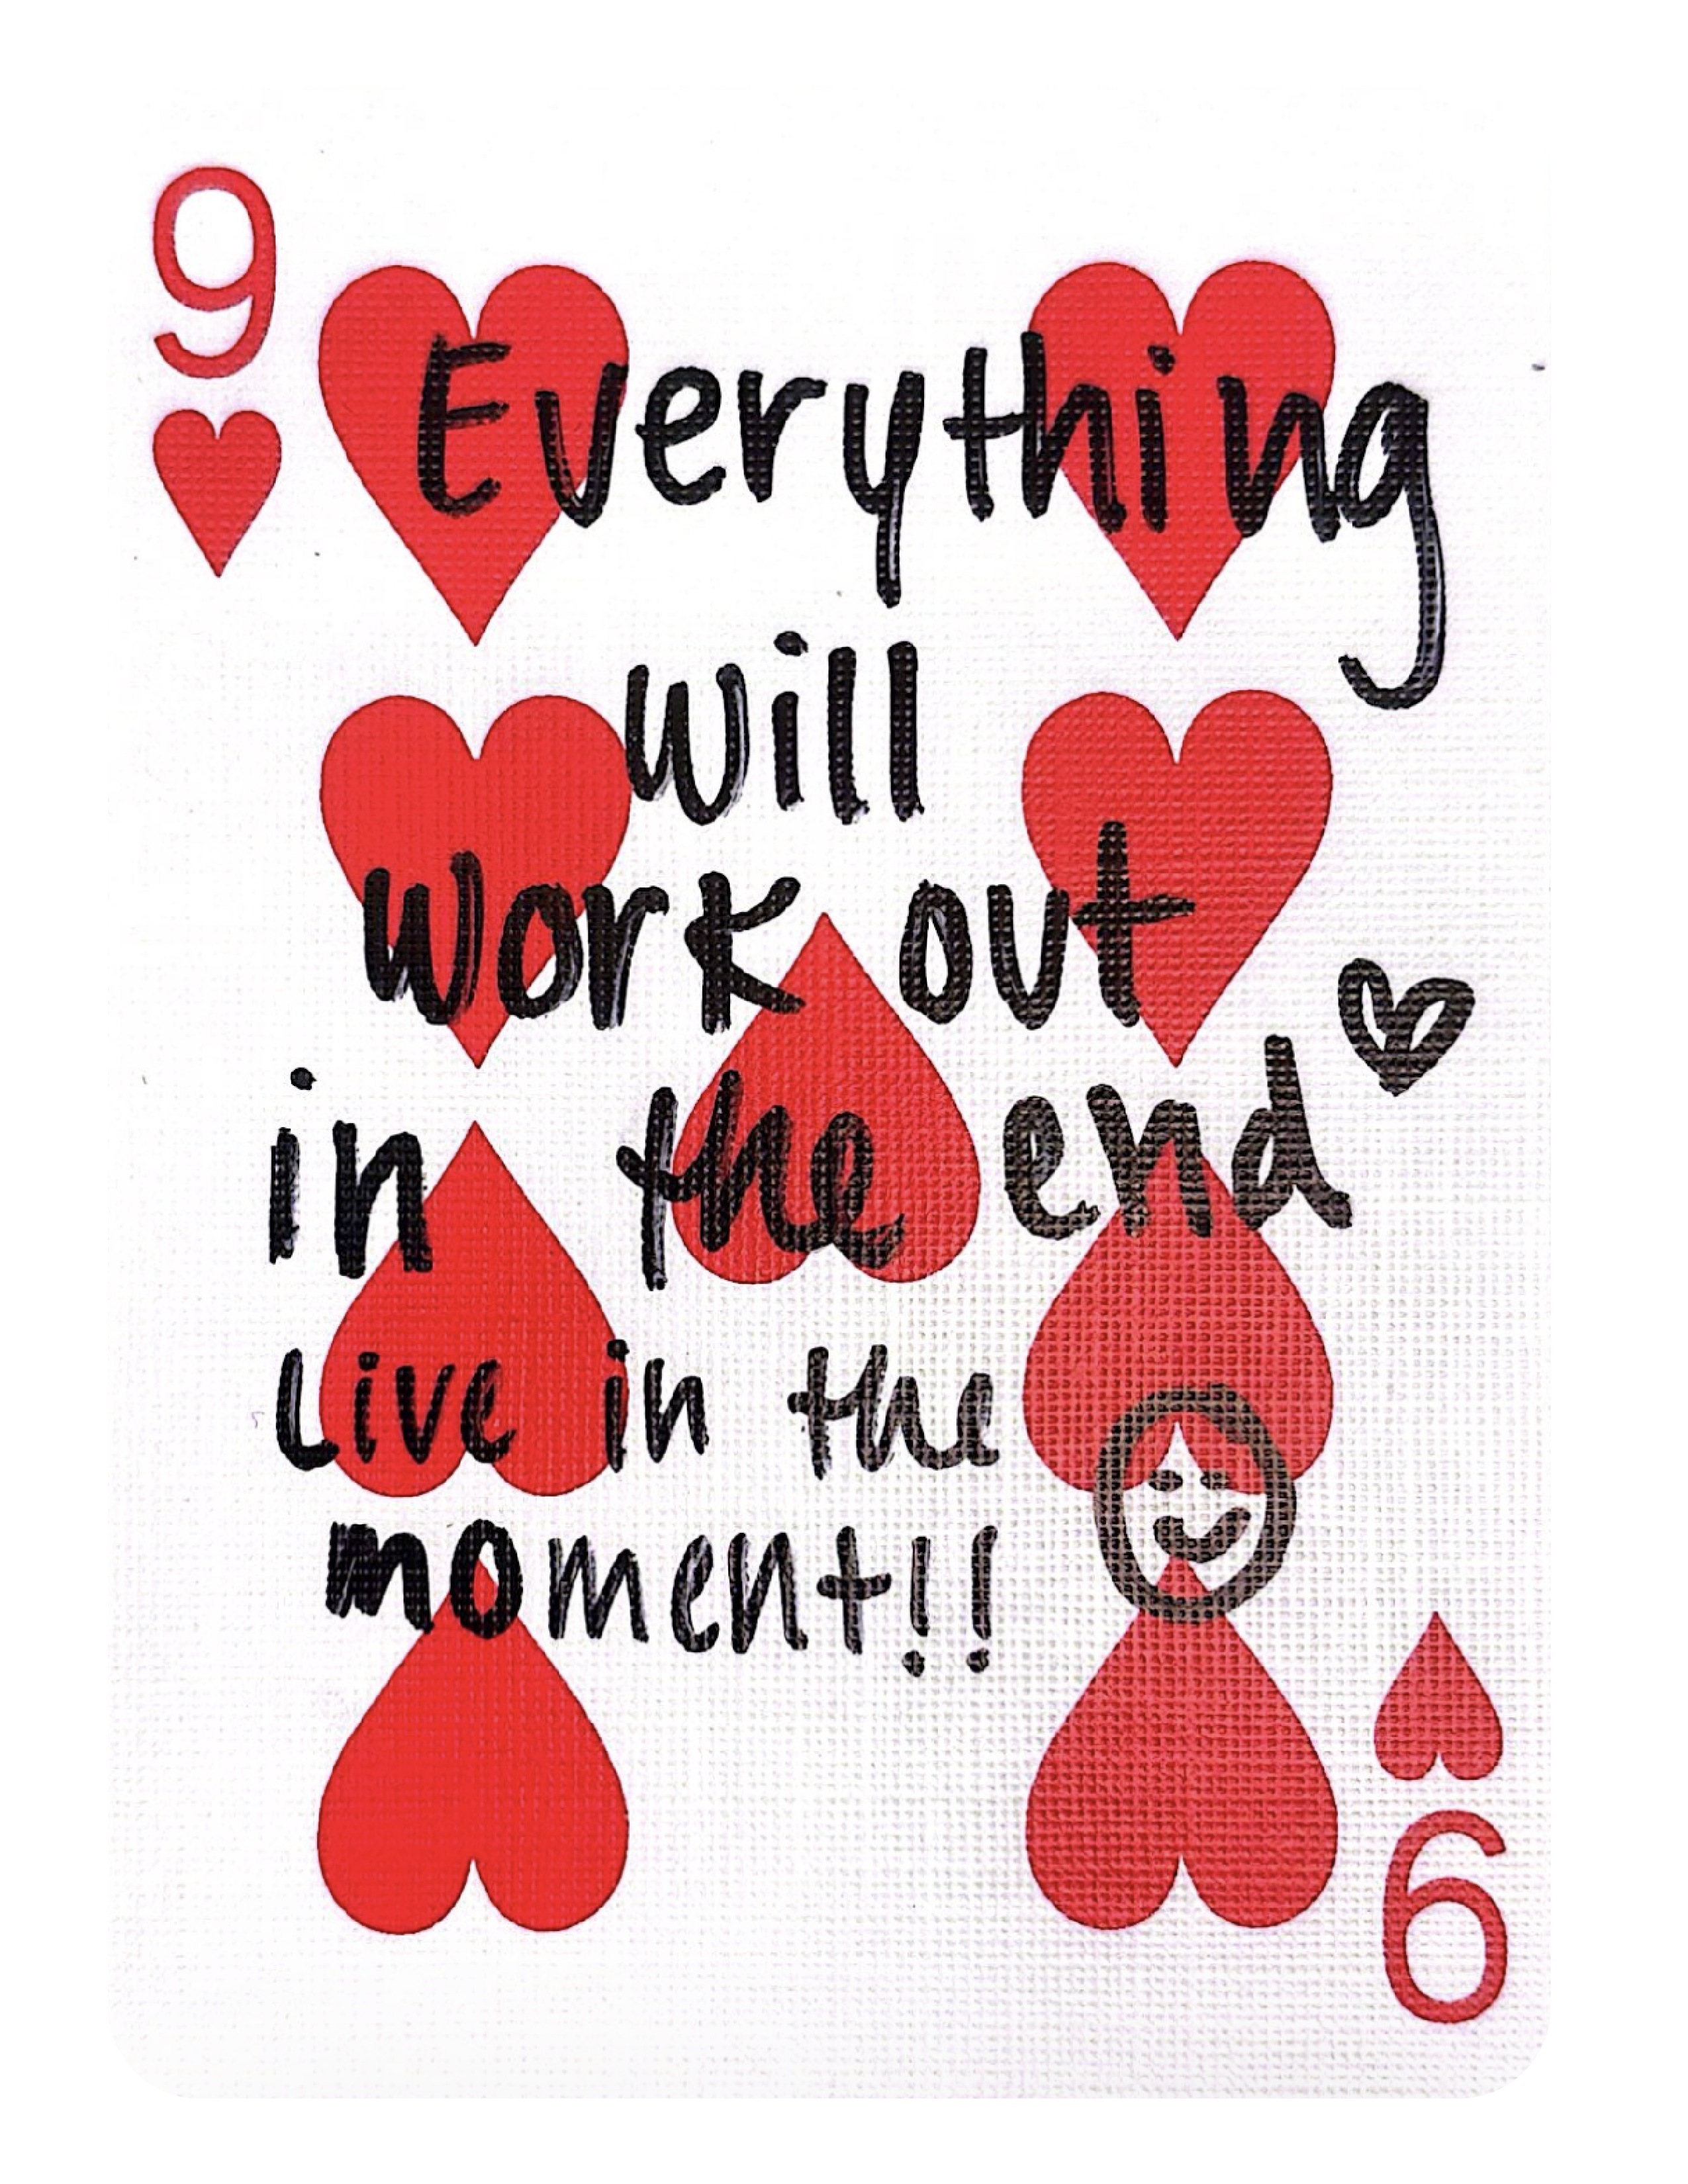 9
Everything
will
work out
in the end
Live in the
moment!!
9